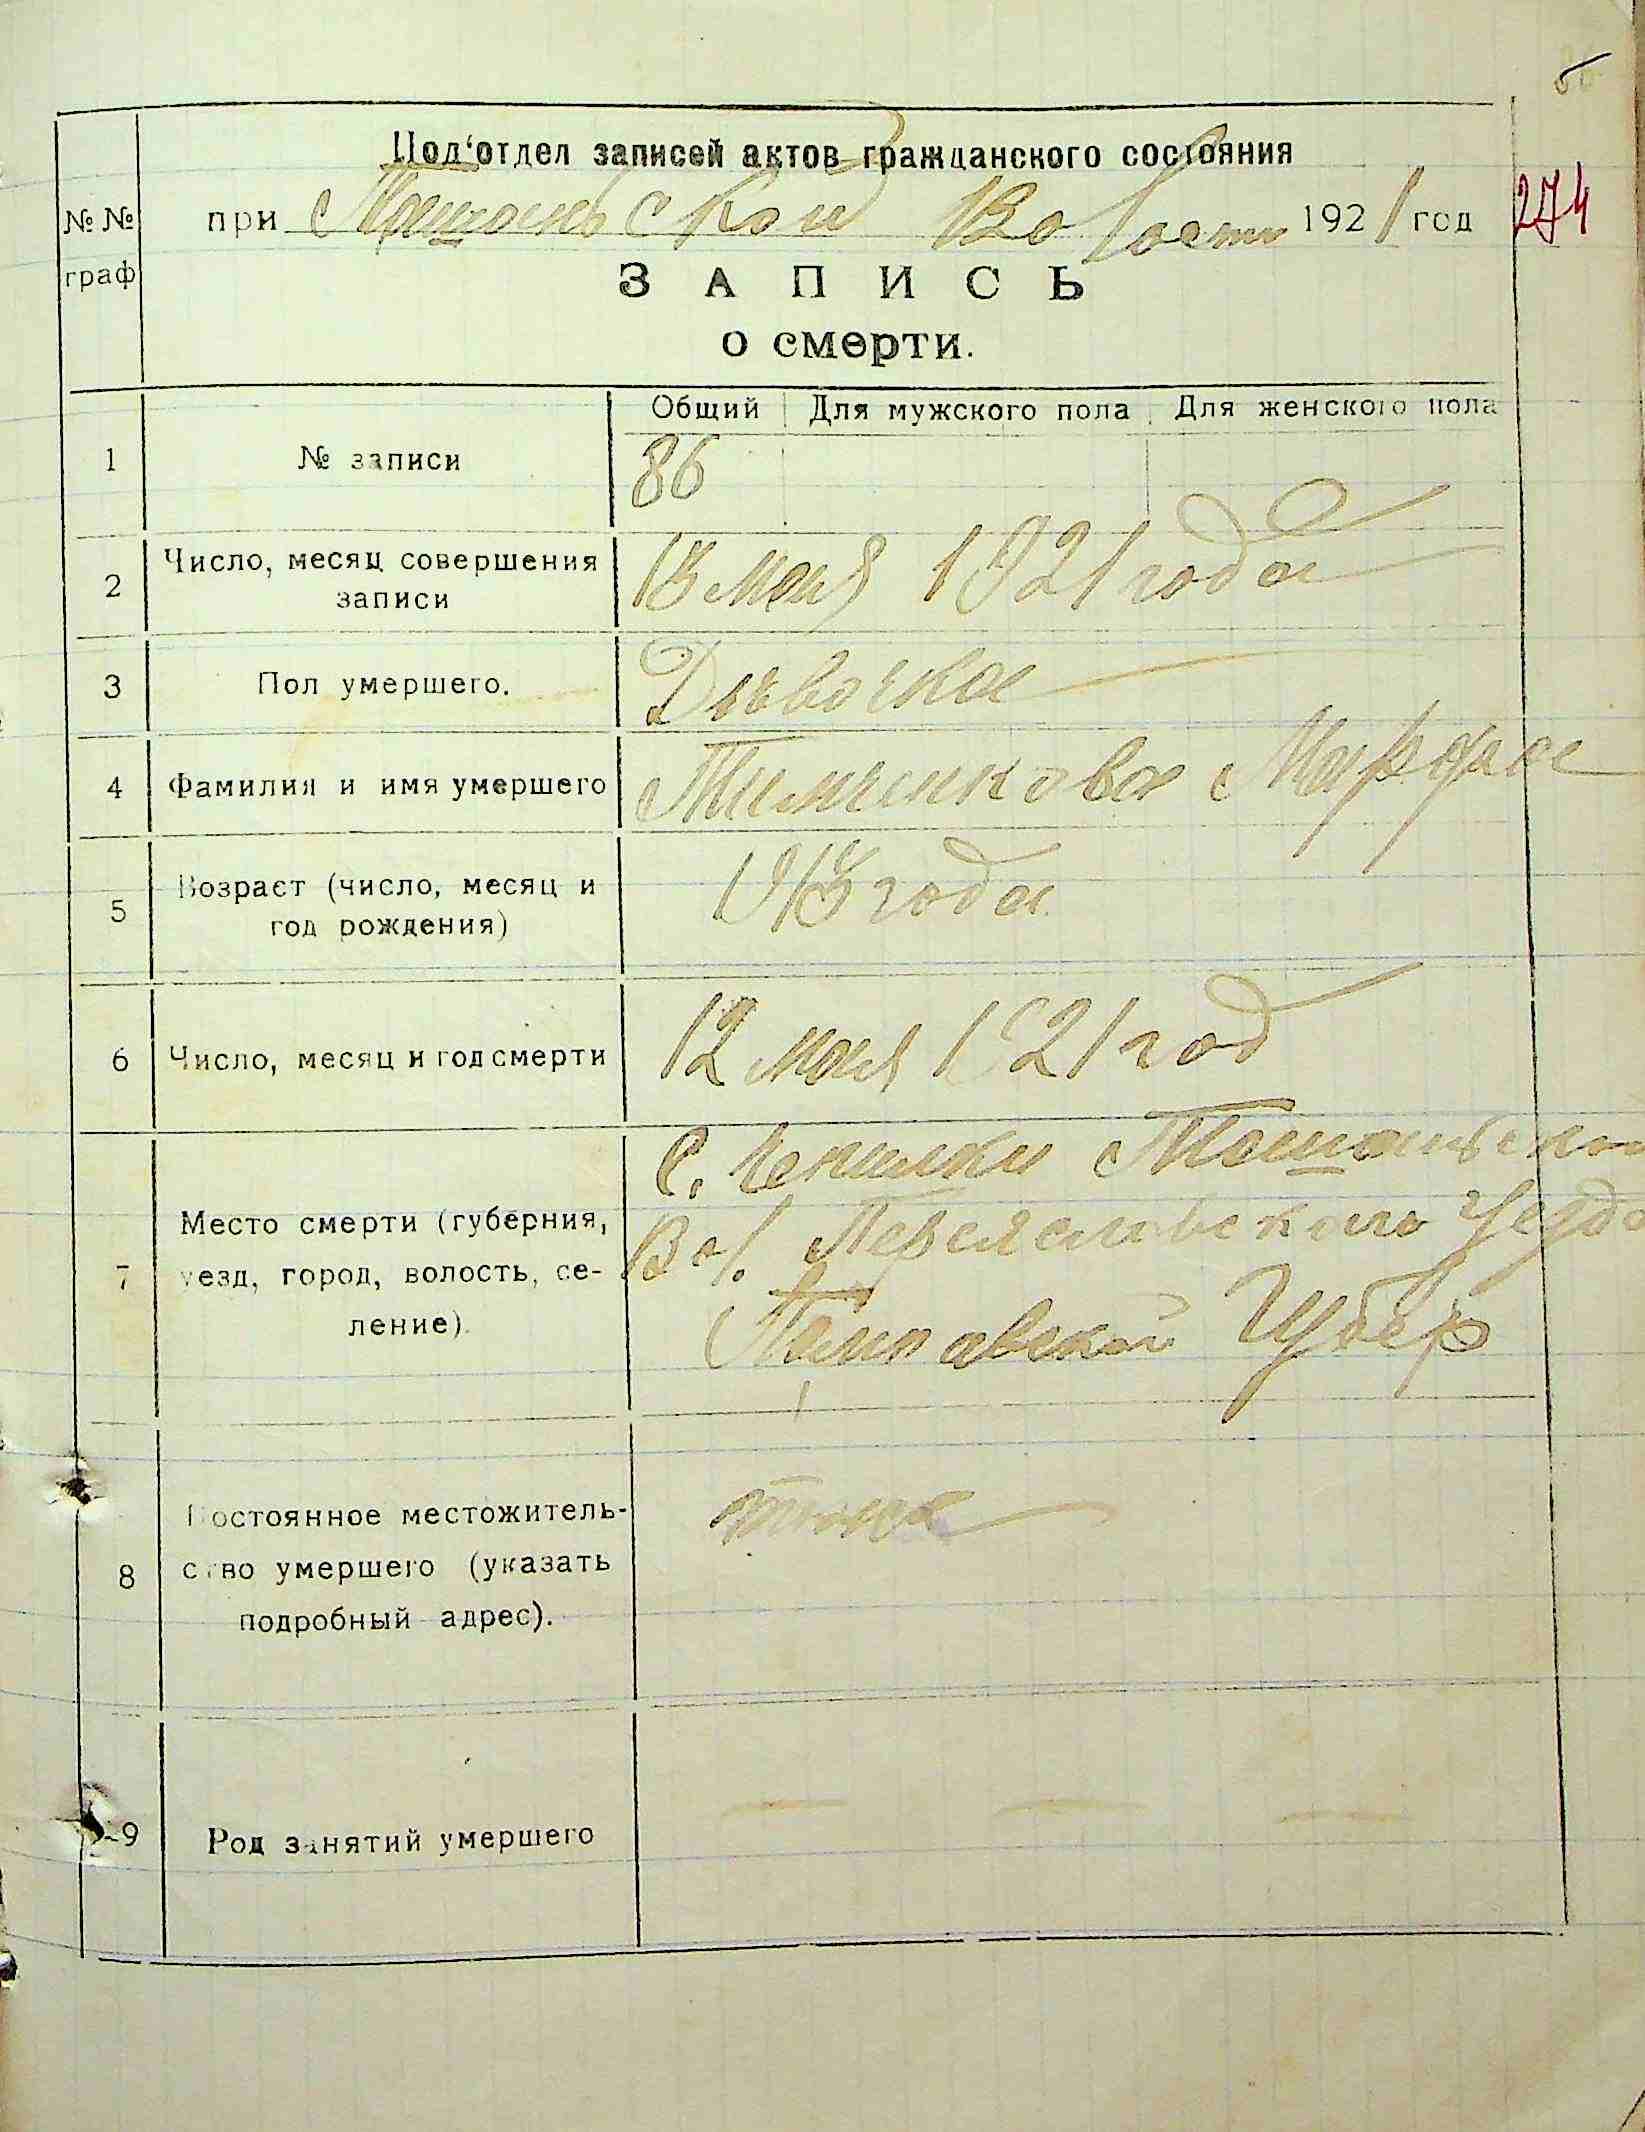 Под'отдел записей актов гражданского состояния
№ № граф
при Ташаньской Волости 1921 год
274
ЗАПИСЬ
о смерти.
Общий Для мужского пола Для женского пола
1 № записи 86
2 Число, месяц совершения записи 13 мая 1921 года
3 Пол умершего. Дъвочка
4 Фамилия и имя умершего Тимченкова Марфа
5 Возраст (число, месяц и год рождения) 1918 года
6 Число, месяц и год смерти 12 мая 1921 год
7 Место смерти (губерния, уезд, город, волость, селение).
С. Чепилки Ташаньской
Вол. Переяславского Уезда
Полтавской Губер
8 Постоянное местожительство умершего (указать подробный адрес).
9 Род занятий умершего — — —